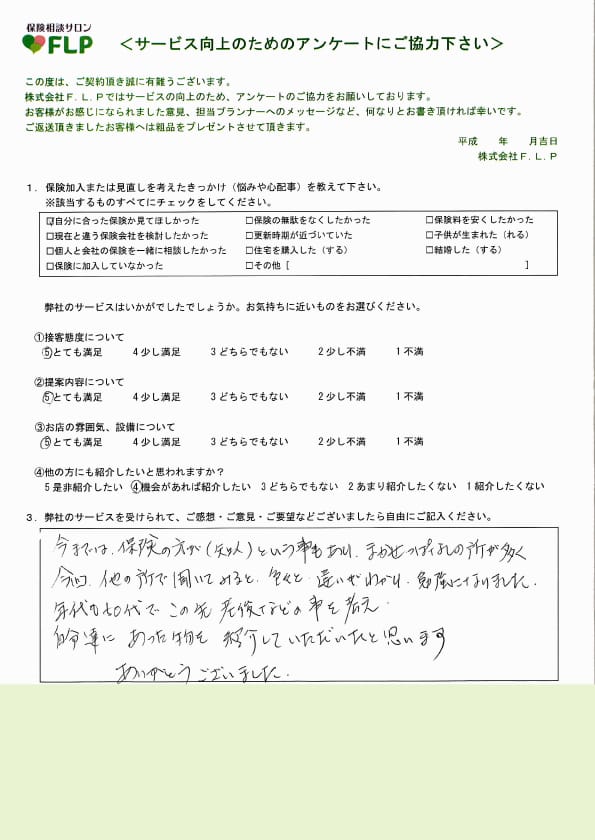 保険相談サロン
FLP
＜サービス向上のためのアンケートにご協力下さい＞
この度は、ご契約頂き誠に有難うございます。
株式会社Ｆ.Ｌ.Ｐではサービスの向上のため、アンケートのご協力をお願いしております。
お客様がお感じになられました意見、担当プランナーへのメッセージなど、何なりとお書き頂ければ幸いです。
ご返送頂きましたお客様へは粗品をプレゼントさせて頂きます。
平成　　年　　月吉日
株式会社Ｆ.Ｌ.Ｐ
１．保険加入または見直しを考えたきっかけ（悩みや心配事）を教えて下さい。
※該当するものすべてにチェックをしてください。
☑自分に合った保険か見てほしかった　□保険の無駄をなくしたかった　□保険料を安くしたかった
□現在と違う保険会社を検討したかった　□更新時期が近づいていた　□子供が生まれた（れる）
□個人と会社の保険を一緒に相談したかった　□住宅を購入した（する）　□結婚した（する）
□保険に加入していなかった　□その他［　　］
弊社のサービスはいかがでしたでしょうか。お気持ちに近いものをお選びください。
①接客態度について
⑤とても満足　4少し満足　3どちらでもない　2少し不満　1不満
②提案内容について
⑤とても満足　4少し満足　3どちらでもない　2少し不満　1不満
③お店の雰囲気、設備について
⑤とても満足　4少し満足　3どちらでもない　2少し不満　1不満
④他の方にも紹介したいと思われますか？
5是非紹介したい　④機会があれば紹介したい　3どちらでもない　2あまり紹介したくない　1紹介したくない
３．弊社のサービスを受けられて、ご感想・ご意見・ご要望などございましたら自由にご記入ください。
今までは、保険の方が（知人）という事もあり、まかせっぱなしの所が多く
今回、他の所で聞いてみると、色々と違いがわかり、勉強になりました。
年代も60代でこの先老後などの事を考え
自分達にあった物を紹介していただいたと思います
ありがとうございました。